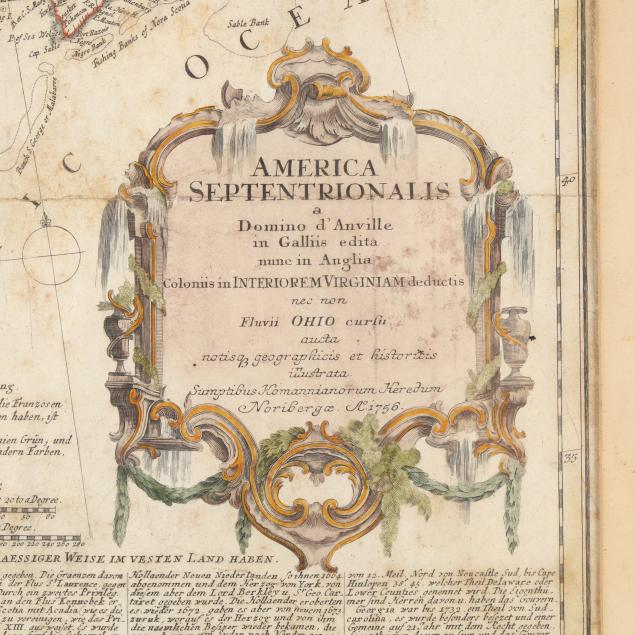 Sable Bank
Fishing Banks of Nova Scotia
Cap. Sable
OCE
IC
40
AMERICA
SEPTENTRIONALIS
a
Domino d'Anville
in Galliis edita
nunc in Anglia
Coloniis in INTERIOREM VIRGINIAM deductis
nec non
Fluvii OHIO cursu
aucta
notisq geographicis et historicis
illustrata
Sumptibus Homannianorum Heredum
Noribergæ A. 1756.
die Franzosen
haben, ist
Grün, und
andern Farben,
20 to a Degree.
a Degree.
35
AESSIGER WEISE IM VESTEN LAND HABEN.
gegeben. Die Graenzen davon
der Flus St Laurence, gegen
durch ein zweytes Privileg.
an den Flus Kennebek er
Scotia mit Acadia, wie es die
zu vereinigen, wie das Pri
XIII. ausweiset. Es wurde
Hollaender Neuen Niederlanden, so ihnen 1664
abgenommen und dem Herzog von York, von
diesem aber dem Lord Berkley u. St Geo. Car
taret gegeben wurde. Die Hollaender eroberten
es wieder 1672, gaben es aber von neuem 1673
zuruk, worauf es der Herzog und von ihm
die naemlichen Besizer wieder bekamen, die
von 12. Meil. Nord von Neucastle Sud, bis Cape
Hinlopen 38° 45', welcher Theil Delaware oder
Lower Counties genennt wird. Die eigenthü-
mer sind Herren davon u. haben das Gouvern.
Georgia war bis 1732 ein Theil von Sud
carolina, es wurde besonders besezet und einer
Gemeine auf 21. Jahr mit den Recht gegeben.